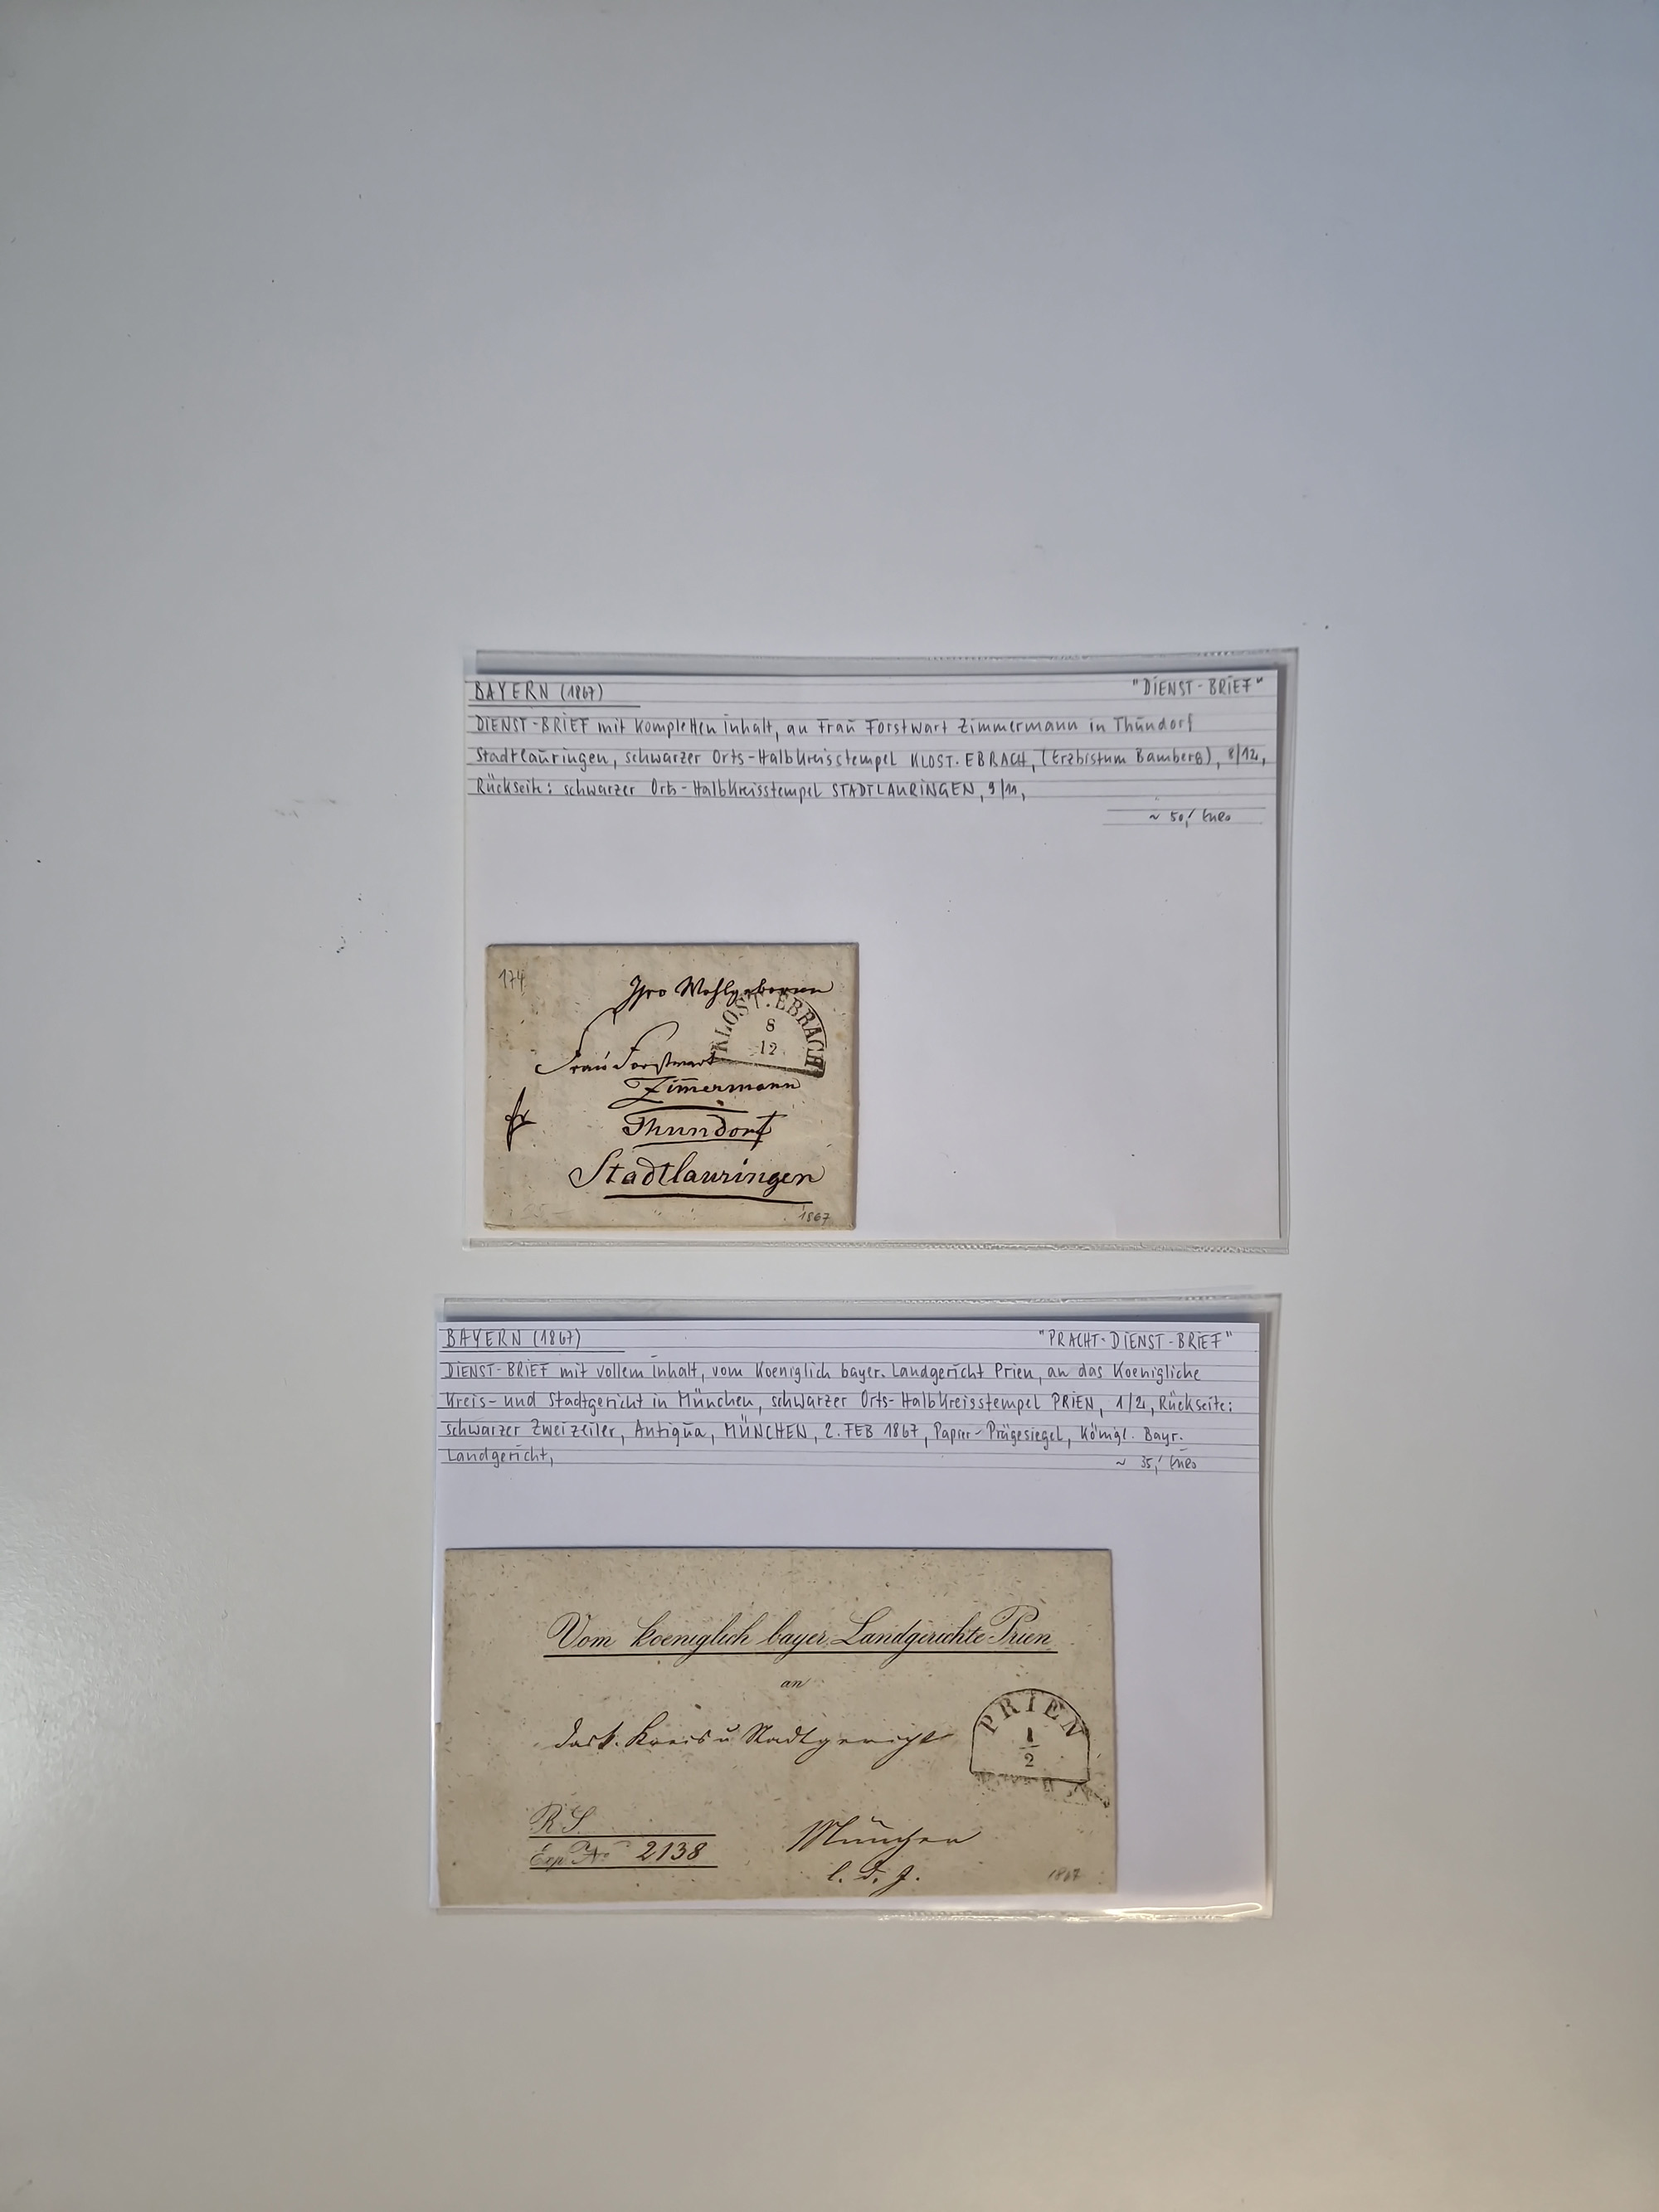 BAYERN (1867) "DIENST-BRIEF"
DIENST-BRIEF mit kompletten inhalt, an Frau Forstwart Zimmermann in Thundorf
Stadtlauringen, schwarzer Orts-Halbkreisstempel KLOST. EBRACH, (Erzbistum Bamberg), 8/12,
Rückseite: schwarzer Orts-Halbkreisstempel STADTLAURINGEN, 9/11,
~ 50,- Euro
174
Ihro Wohlgeboren
KLOST. EBRACH
8
12
Frau Forstwart
Zimmermann
fr
Thundorf
Stadtlauringen
1867
BAYERN (1867) "PRACHT-DIENST-BRIEF"
DIENST-BRIEF mit vollem inhalt, vom Koeniglich bayer. Landgericht Prien, an das Koenigliche
Kreis- und Stadtgericht in München, schwarzer Orts-Halbkreisstempel PRIEN, 1/2, Rückseite:
schwarzer Zweizeiler, Antiqua, MÜNCHEN, 2. FEB 1867, Papier-Prägesiegel, Königl. Bayr.
Landgericht,
~ 35,- Euro
Vom koeniglich bayer. Landgerichte Prien
an
das k. Kreis u Stadtgericht
PRIEN
1
2
R. S.
Exp. No. 2138
München
l. d. J.
1867